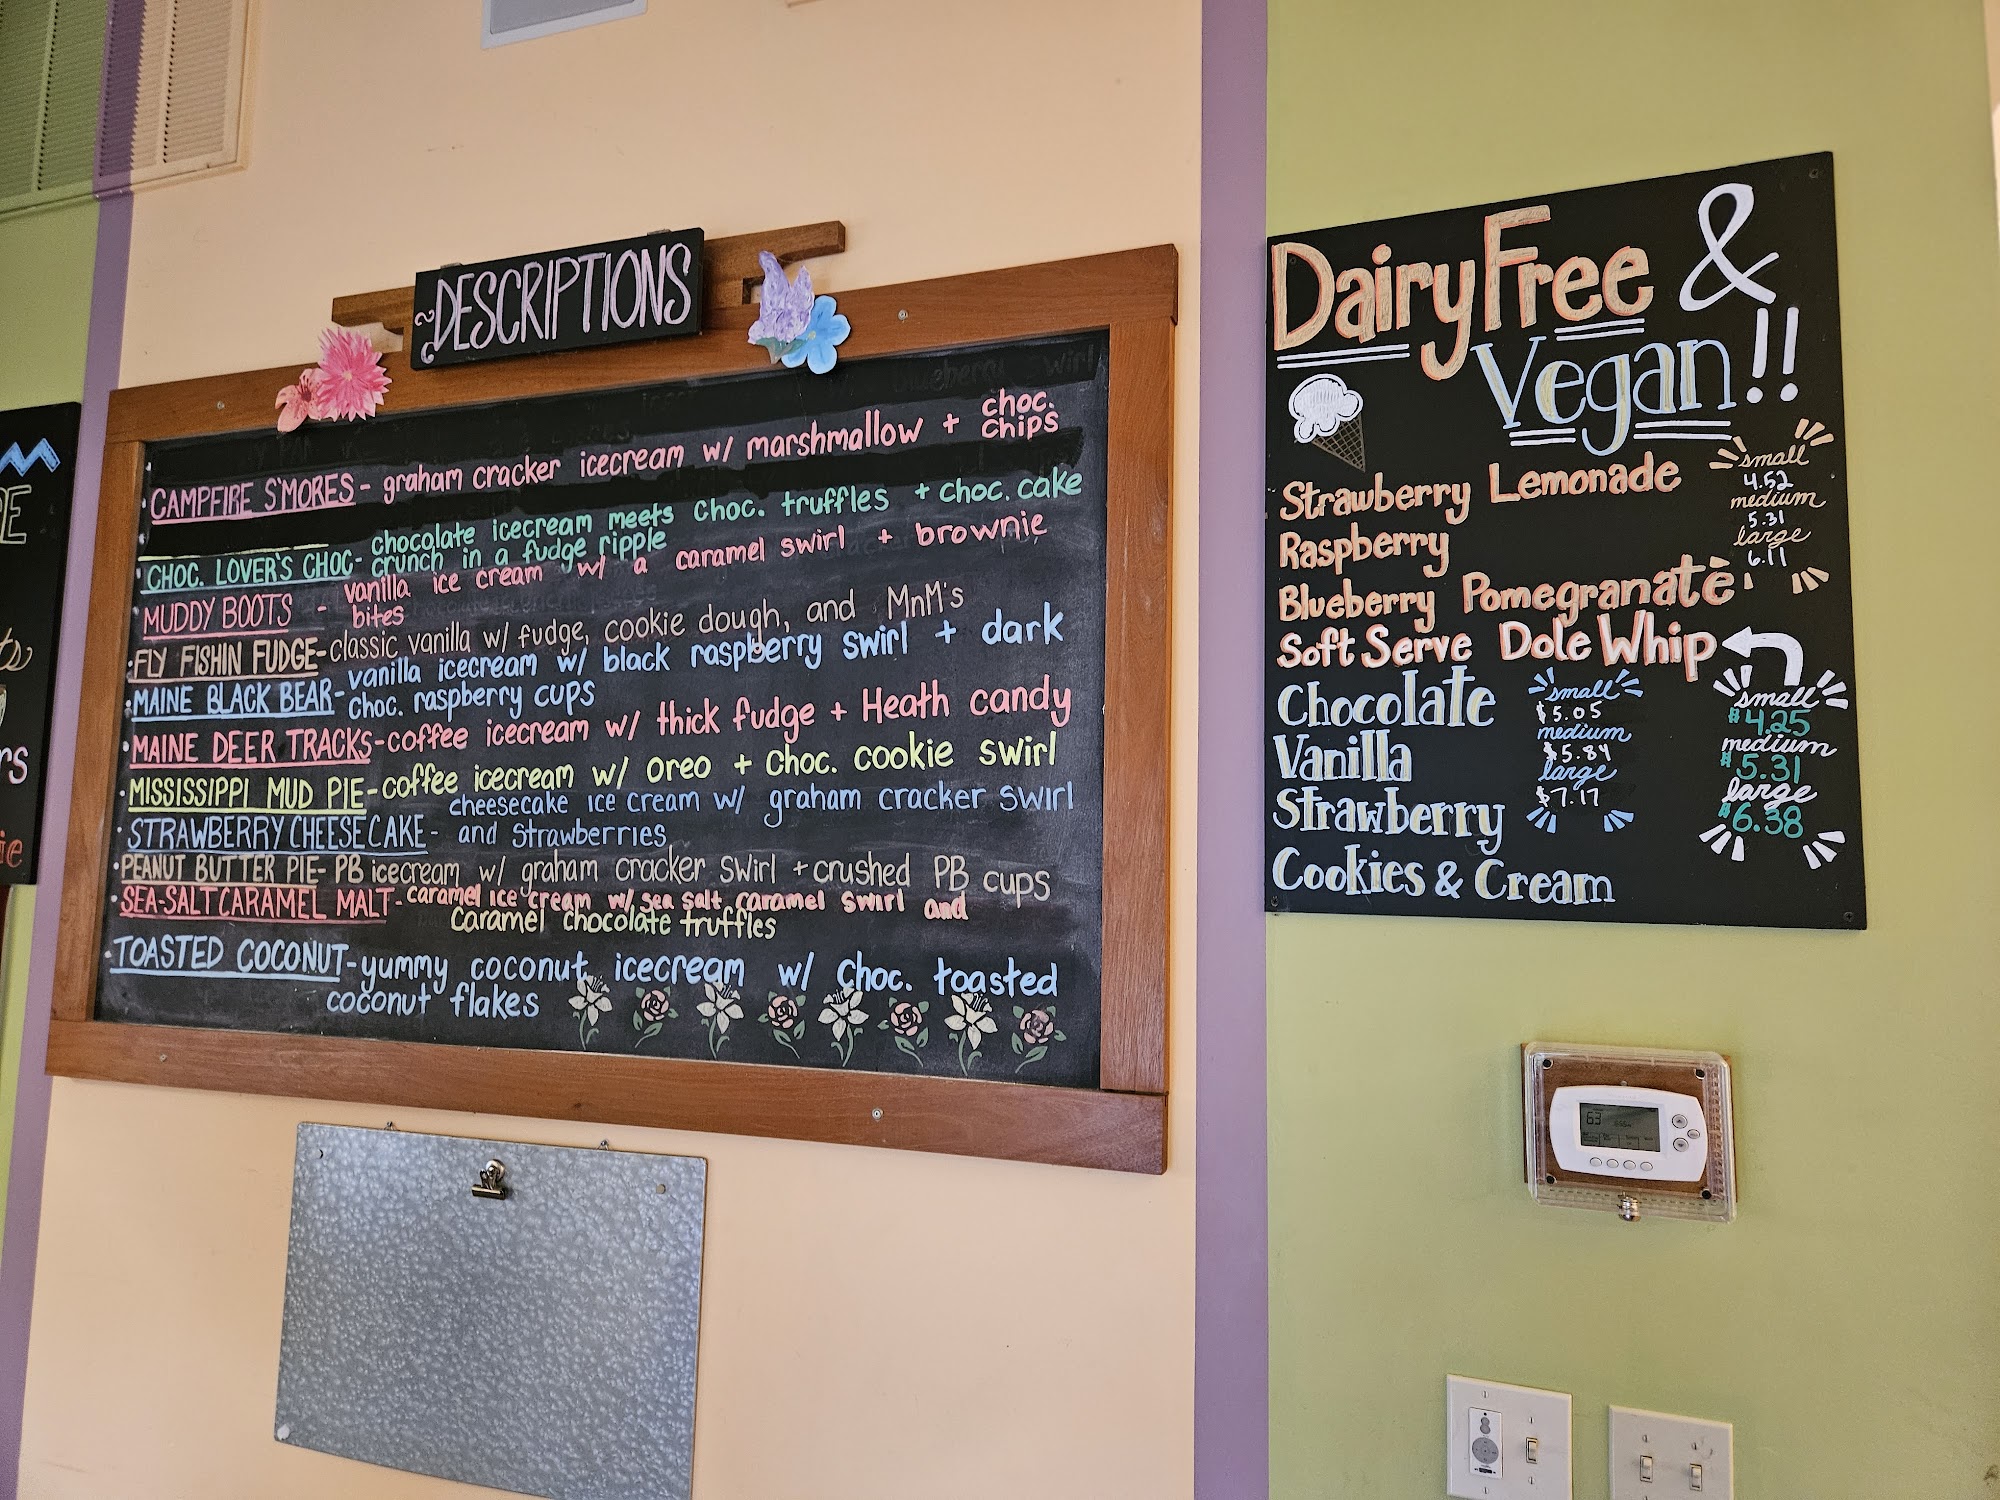 DESCRIPTIONS
CAMPFIRE S'MORES - graham cracker icecream w/ marshmallow + choc. chips
CHOC. LOVER'S CHOC - chocolate icecream meets choc. truffles + choc. cake
crunch in a fudge ripple
MUDDY BOOTS - vanilla ice cream w/ a caramel swirl + brownie
bites
FLY FISHIN FUDGE - classic vanilla w/ fudge, cookie dough, and MnM's
MAINE BLACK BEAR - vanilla icecream w/ black raspberry swirl + dark
choc. raspberry cups
MAINE DEER TRACKS - coffee icecream w/ thick fudge + Heath candy
MISSISSIPPI MUD PIE - coffee icecream w/ oreo + choc. cookie swirl
STRAWBERRY CHEESECAKE - cheesecake ice cream w/ graham cracker swirl
and strawberries
PEANUT BUTTER PIE - PB icecream w/ graham cracker swirl + crushed PB cups
SEA-SALT CARAMEL MALT - caramel ice cream w/ sea salt caramel swirl and
caramel chocolate truffles
TOASTED COCONUT - yummy coconut icecream w/ choc. toasted
coconut flakes
Dairy Free &
Vegan!!
Strawberry Lemonade
Raspberry
Blueberry Pomegranate
small
4.52
medium
5.31
large
6.11
Soft Serve Dole Whip
small
$4.25
medium
$5.31
large
$6.38
Chocolate
Vanilla
Strawberry
Cookies & Cream
small
$5.05
medium
$5.84
large
$7.17
63